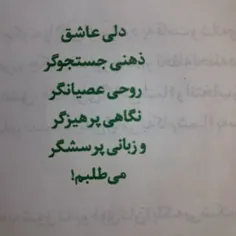 دلی عاشق
ذهنی جستجوگر
روحی عصیانگر
نگاهی پرهیزگر
و زبانی پرسشگر
می‌طلبم!